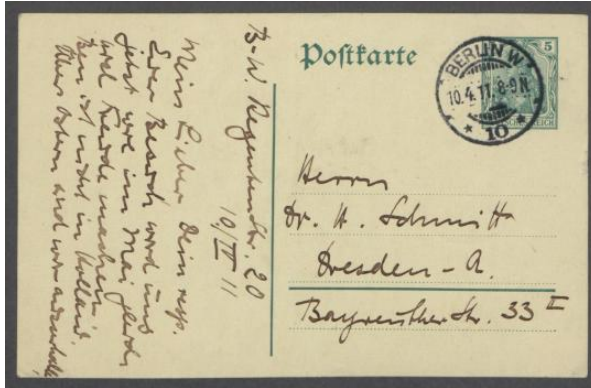 Postkarte
5
BERLIN W
10.4.11. 8-9 N
* 10 *
REICH
Herrn
Dr. H. Schmitt
Dresden-A.
Bayreuther Str. 33 I
B-W. Regentenstr. 20
10/IV 11
Mein Lieber, Dein resp.
Euer Besuch wird uns
jetzt wie im Mai gleiche
Freude machen.
Ben. ist nicht in Holland.
Ostern sind wir